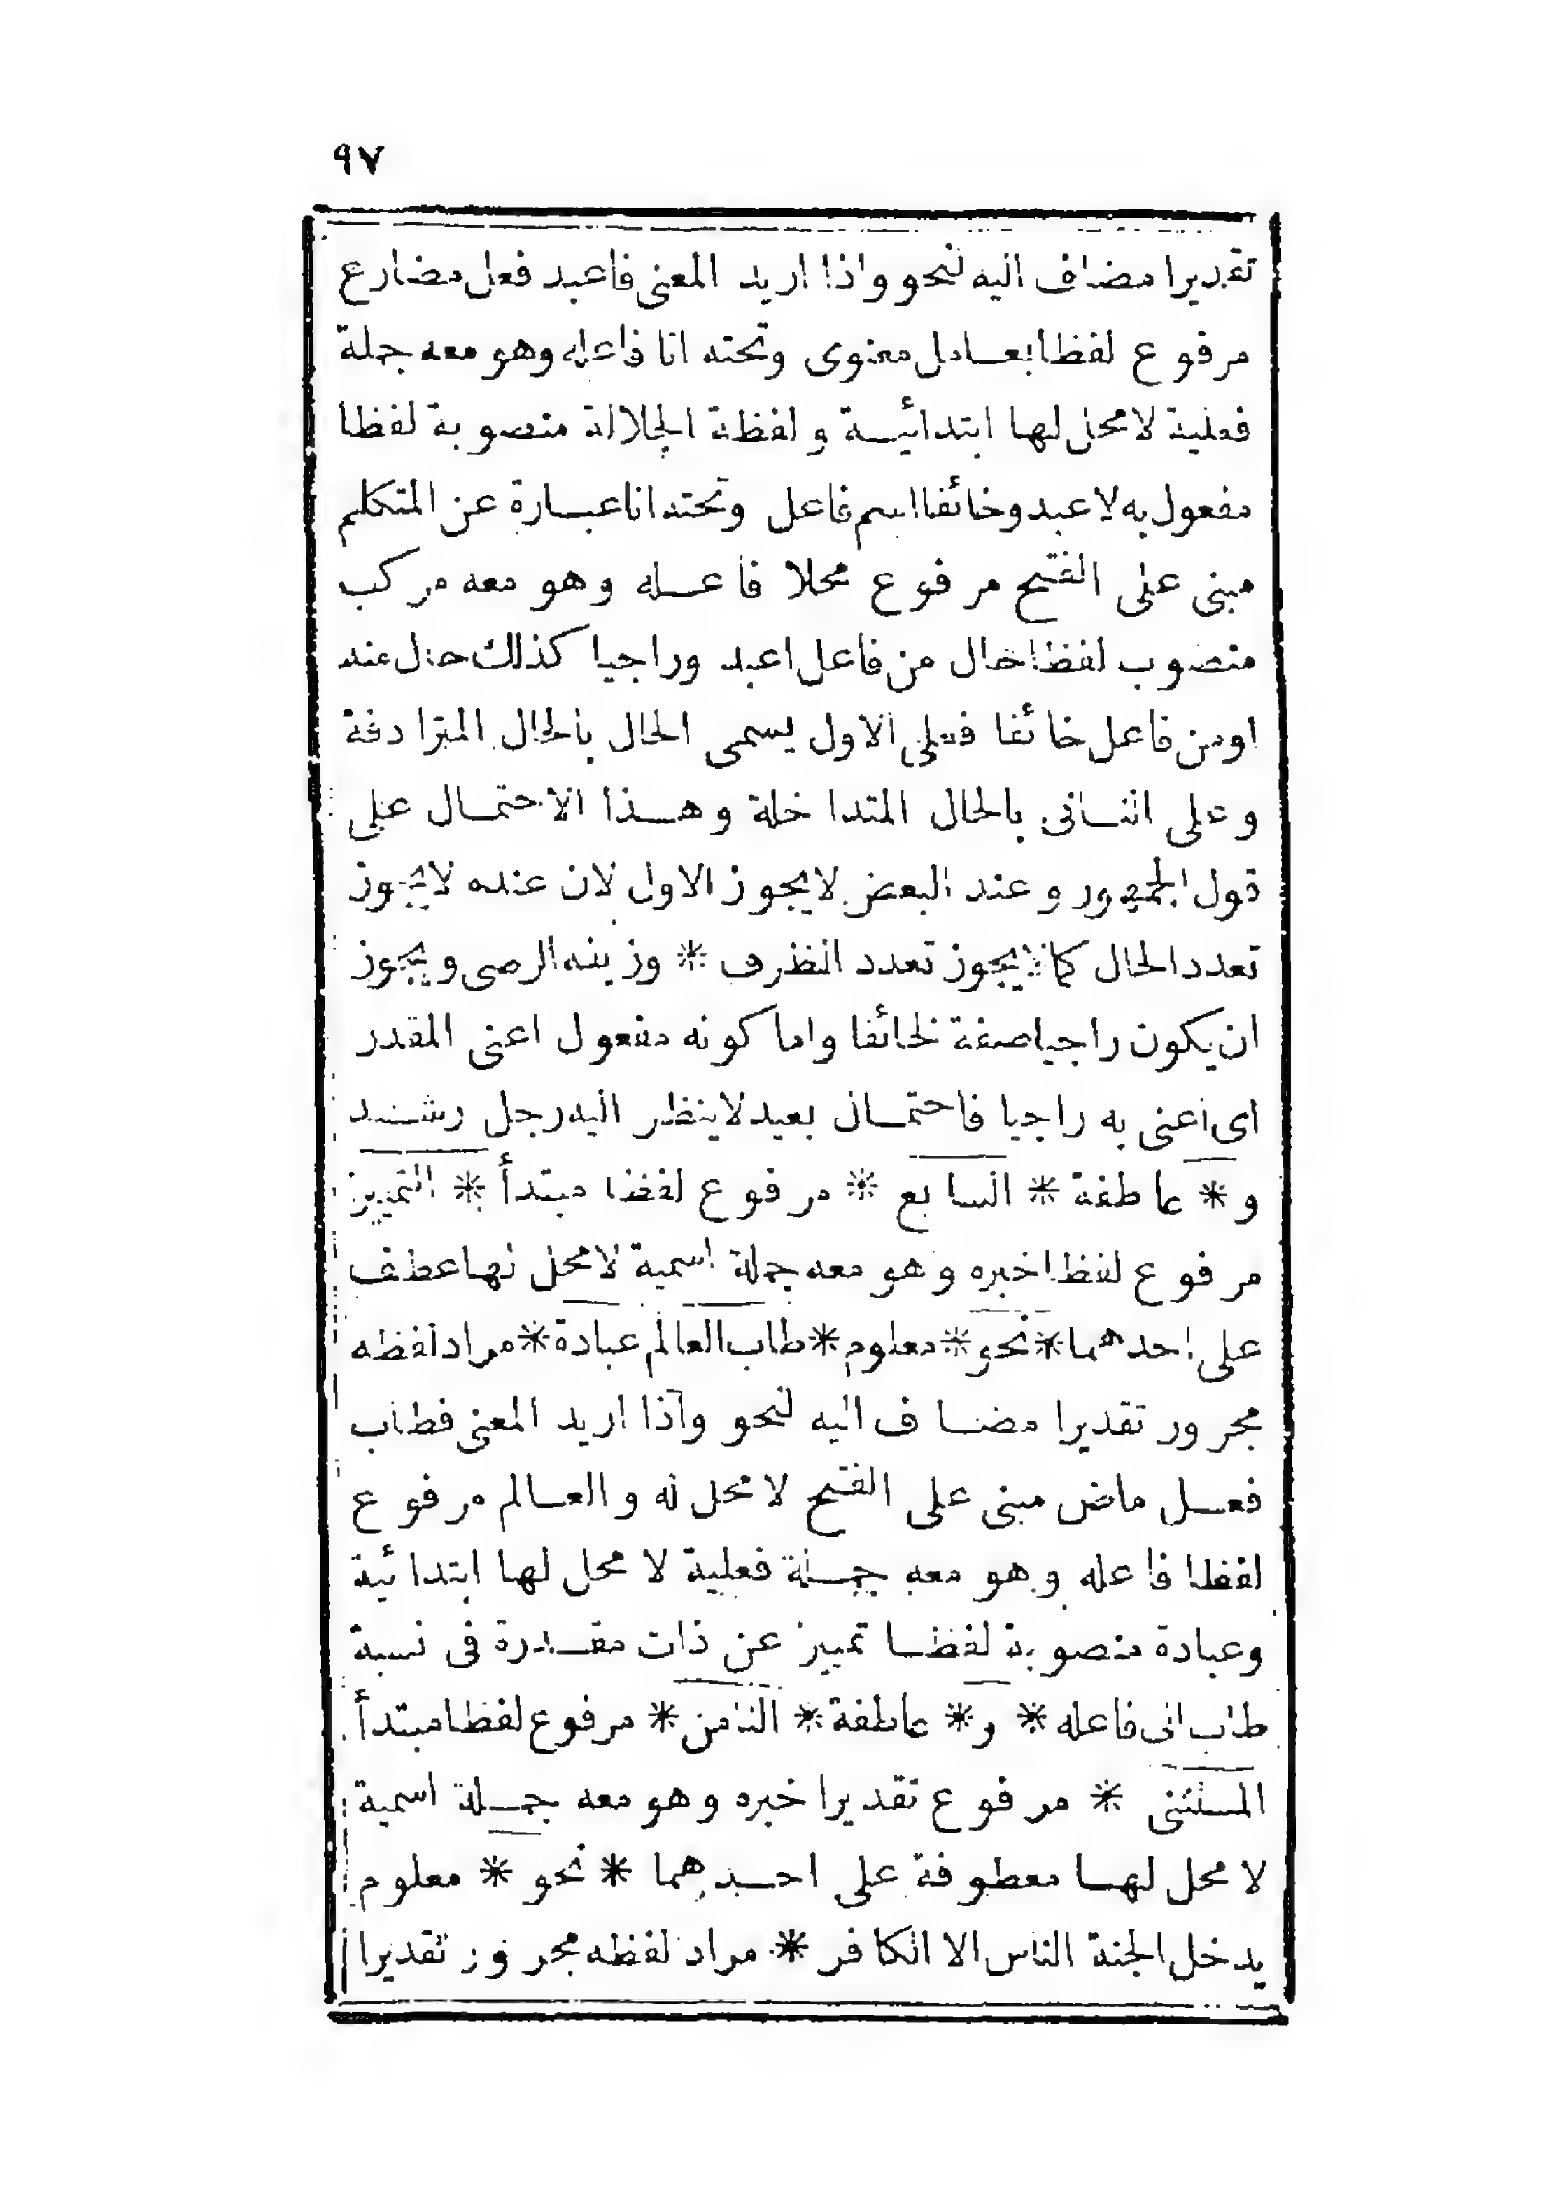 ٩٧
تقديرا مضاف اليه لنحو واذا اريد المعنى فاعبد فعل مضارع
مرفوع لفظا بعامل معنوى وتحته انا فاعله وهو معه جملة
فعلية لا محل لها ابتدائية ولفظة الجلالة منصوبة لفظا
مفعول به لاعبد وخائفا اسم فاعل وتحته انا عبارة عن المتكلم
مبنى على الفتح مرفوع محلا فاعله وهو معه مركب
منصوب لفظا حال من فاعل اعبد وراجيا كذلك حال عنه
او من فاعل خائفا فعلى الاول يسمى الحال بالحال المترادفة
وعلى الثانى بالحال المتداخلة وهذا الاحتمال على
قول الجمهور وعند البعض لا يجوز الاول لان عنده لا يجوز
تعدد الحال كما لا يجوز تعدد الظرف * وزيفه الرضى ويجوز
ان يكون راجيا صفة لخائفا واما كونه مفعول اعنى المقدر
اى اعنى به راجيا فاحتمال بعيد لا ينظر اليه رجل رشيد
و * عاطفة * السابع * مرفوع لفظا مبتدأ * التمييز
مرفوع لفظا خبره وهو معه جملة اسمية لا محل لها عطف
على احدهما * نحو * معلوم * طاب العالم عبادة * مراد لفظه
مجرور تقديرا مضاف اليه لنحو واذا اريد المعنى فطاب
فعل ماض مبنى على الفتح لا محل له والعالم مرفوع
لفظا فاعله وهو معه جملة فعلية لا محل لها ابتدائية
وعبادة منصوبة لفظا تمييز عن ذات مقدرة فى نسبة
طاب الى فاعله * و * عاطفة * الثامن * مرفوع لفظا مبتدأ
المستثنى * مرفوع تقديرا خبره وهو معه جملة اسمية
لا محل لها معطوفة على احدهما * نحو * معلوم
يدخل الجنة الناس الا الكافر * مراد لفظه مجرور تقديرا